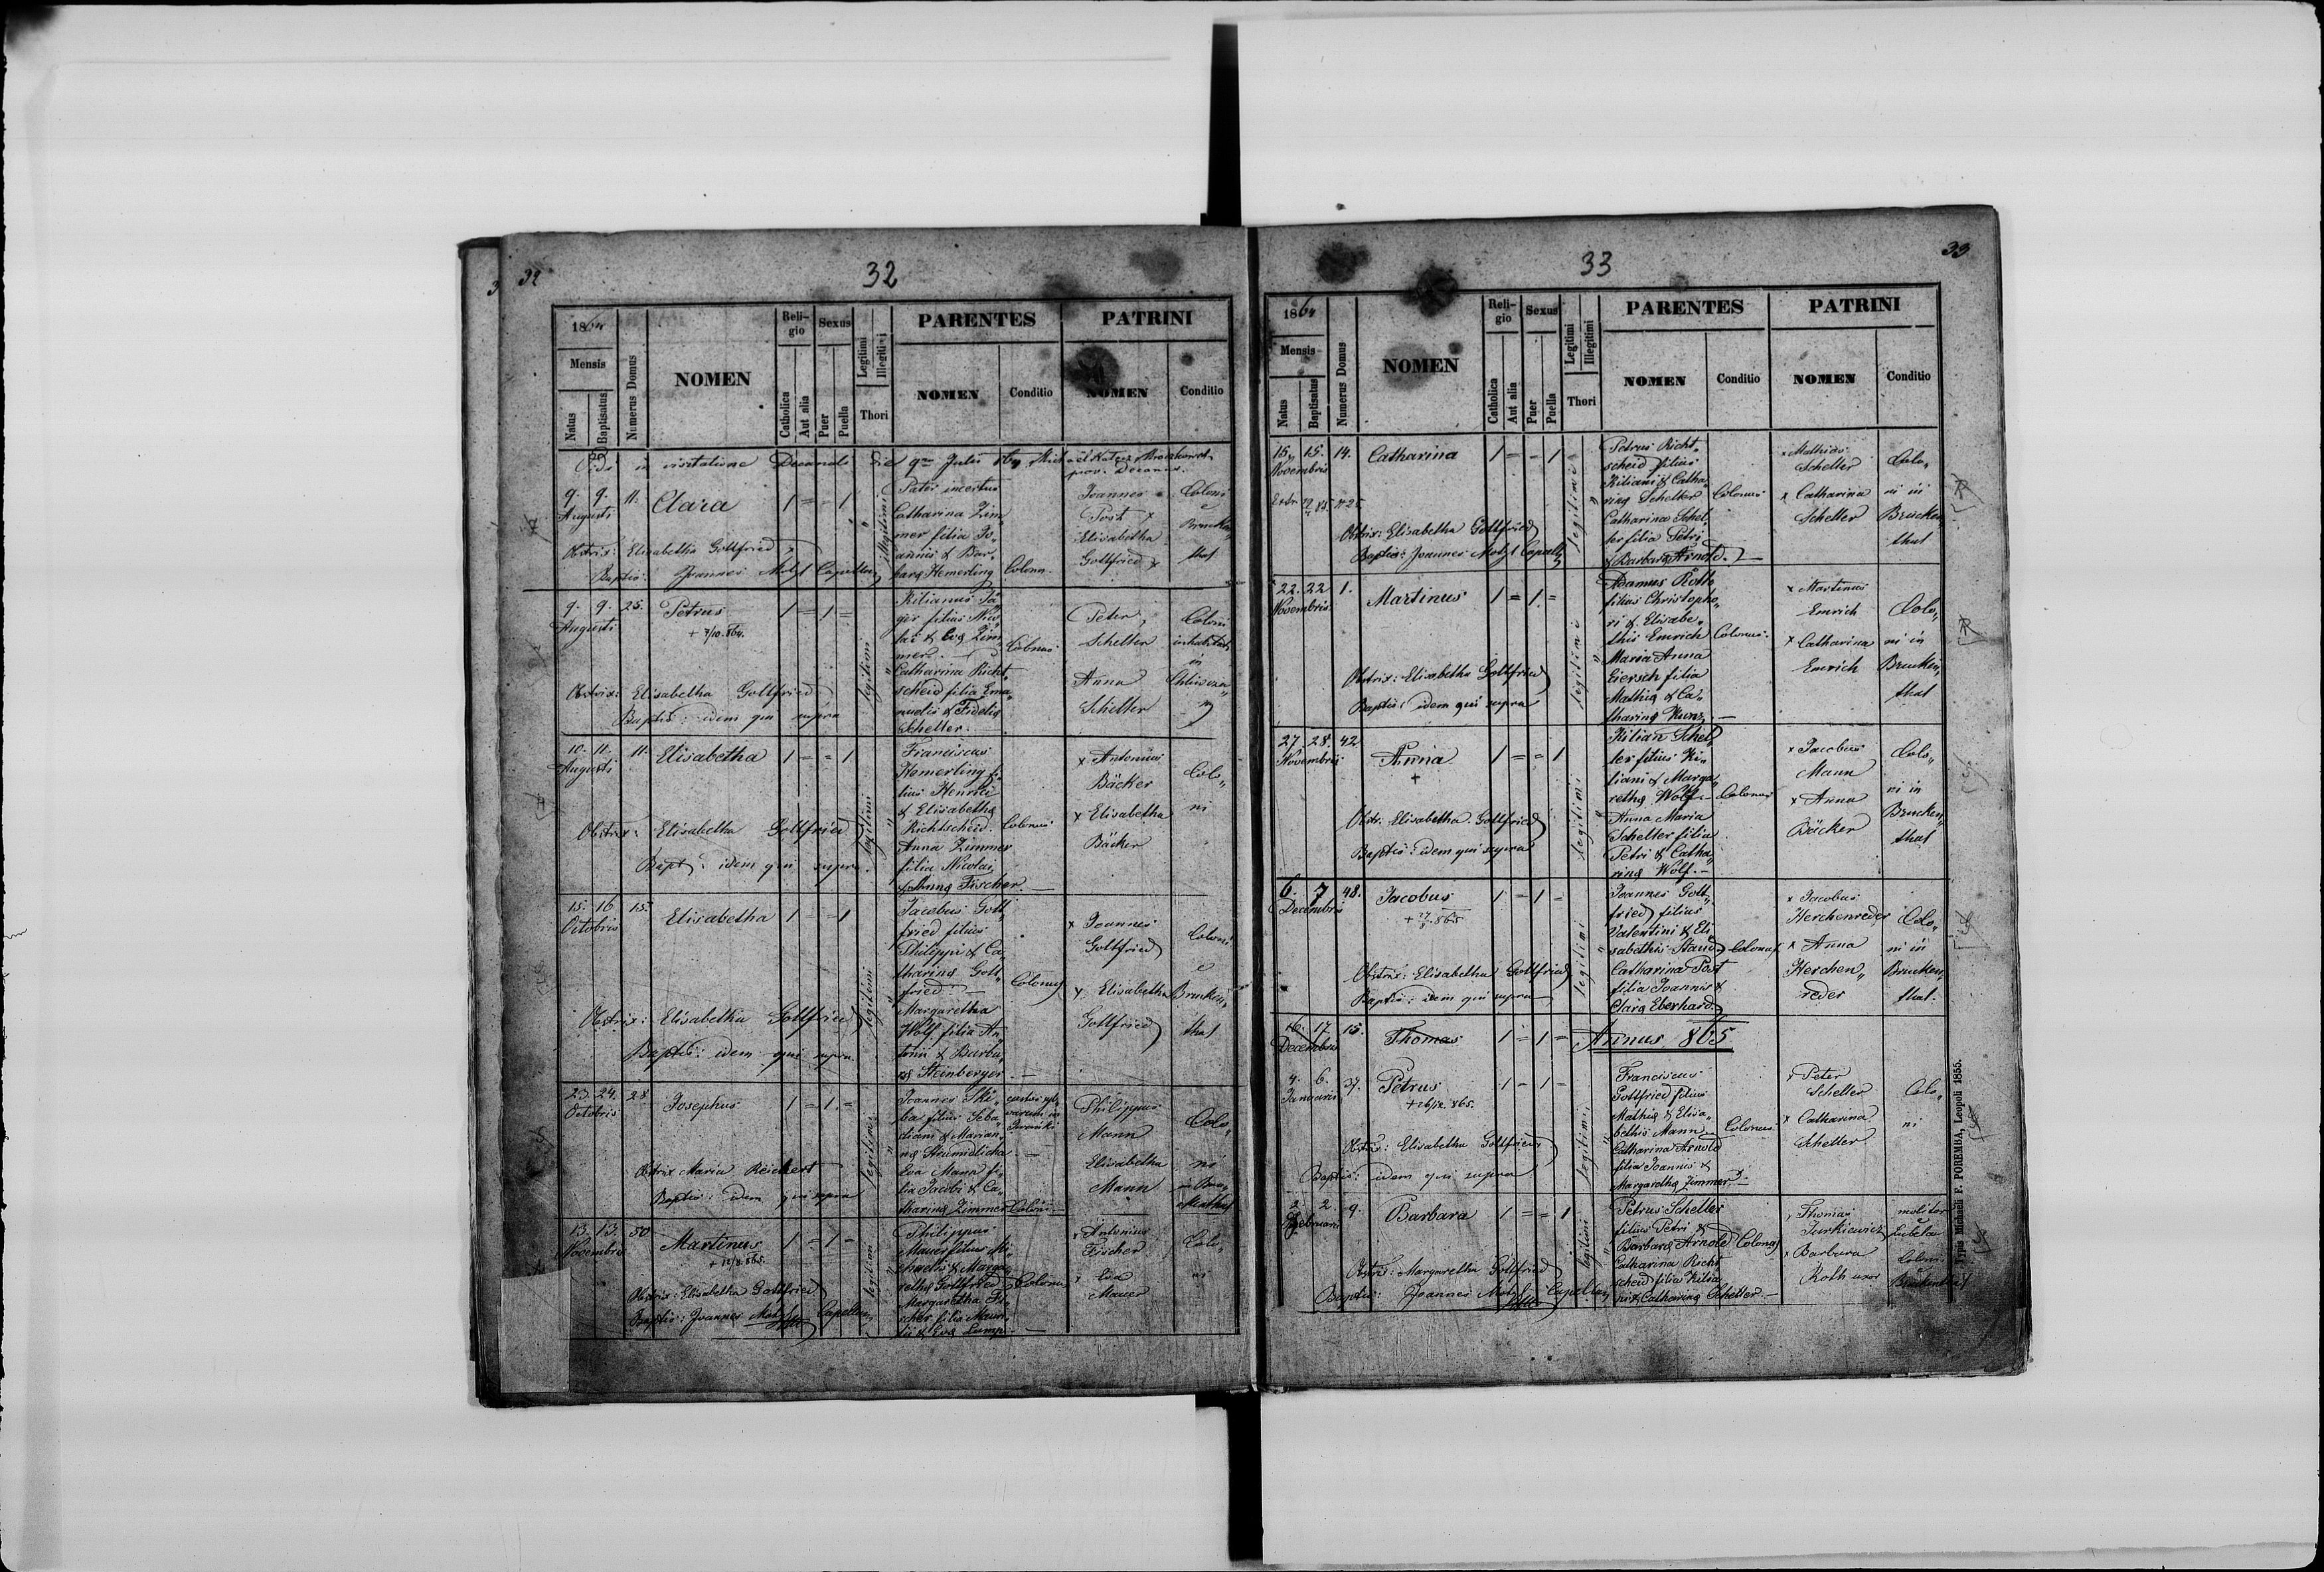 32
32
1864
Mensis
Natus
Baptisatus
Numerus Domus
NOMEN
Religio
Catholica
Aut alia
Sexus
Puer
Puella
Legitimi
Illegitimi
Thori
PARENTES
NOMEN
Conditio
PATRINI
NOMEN
Conditio
Vidi in visitatione Decanali die 9na Julii 864
prov. Decanus.
9. 9. 11. Clara 1 = = 1
Augusti
illegitimi
Pater incertus
Catharina Zim„
mer filia Jo„
annis & Bar„
bara Hemerling
Colonus
Joannes
Post x
Elisabetha
Gottfried x
Coloni
e
Brucken„
thal
Obstrix: Elisabetha Gottfried
Baptis: Joannes Motyl Capellan
9. 9. 25. Petrus 1 = 1 =
Augusti
+ 7/10. 864.
legitimi
Kilianus Jä„
ger filius Nico„
lai & Eva Zim„
mer. —
Catharina Richt„
scheid filia Ema„
nuelis & Fidelis
Schelter.
Colonus
Peter
Schelter
Anna
Schelter
Coloni
inhabitant
in
Obstrix: Elisabetha Gottfried
Baptis: idem qui supra
10. 11. 11. Elisabetha 1 = = 1
Augusti
legitimi
Franciscus
Hemerling fi„
lius Henrici
& Elisabetha
Richtscheid.
Anna Zimmer
filia Nicolai
& Anna Fischer. —
Colonus
x Antonius
Bäcker
x Elisabetha
Bäcker
Colo„
ni
Obstrix: Elisabetha Gottfried
Bapt: idem qui supra.
15. 16 15. Elisabetha 1 = = 1
Octobris
legitimi
Jacobus Gott„
fried filius
Philippi & Ca„
tharina Gott„
fried —
Margaretha
Wolf filia An„
tonii & Barba„
ra Steinberger —
Colonus
x Joannes
Gottfried
x Elisabetha
Gottfried
Coloni
e
Brucken„
thal
Obstrix: Elisabetha Gottfried
Baptis: idem qui supra
23. 24. 28 Josephus 1 = 1. =
Octobris
legitimi
Joannes Ski„
ba filius Seba„
stiani & Marian„
na
Eva Mann fi„
lia Jacobi & Ca„
tharina Zimmer
Coloni —
Philippus
Mann
Elisabetha
Mann
Colo„
ni
Obstrix Maria Reichert
Baptis: idem qui supra
13. 13. 50 Martinus 1 = 1 =
Novembris
+ 12/8. 865.
Philippus
Mauer filius Mi„
chaelis & Marga„
retha Gottfried
Margaretha Fi„
scher filia Mauri„
tii & Eva Lump. —
Colonus
x Antonius
Fischer
x Eva
Mauer
Colo„
ni
Obstrix: Elisabetha Gottfried
Baptis: Joannes Motyl Capellan
33
33
1864
Mensis
Natus
Baptisatus
Numerus Domus
NOMEN
Religio
Catholica
Aut alia
Sexus
Puer
Puella
Legitimi
Illegitimi
Thori
PARENTES
NOMEN
Conditio
PATRINI
NOMEN
Conditio
15. 15. 14. Catharina 1 = = 1
Novembris
legitimi
Petrus Richt„
scheid filius
Kiliani & Catha„
rina Schelter
Catharina Schel„
ter filia Petri
& Barbara Arnold. —
Colonus
x Mathias
Schelter
x Catharina
Schelter
Colo„
ni in
Brucken„
thal
Obstrix: Elisabetha Gottfried
Baptis: Joannes Motyl Capell
22. 22 1. Martinus 1 = 1. =
Novembris
legitimi
Adamus Roth
filius Christopho„
ri & Elisabe„
this Emrich
Maria Anna
Giersch filia
Mathia & Ca„
tharina Kunz. —
Colonus
x Martinus
Emrich
x Catharina
Emrich
Colo„
ni in
Brucken„
thal
Obstrix: Elisabetha Gottfried
Baptis: idem qui supra
27. 28. 42. Anna 1 = = 1
Novembris
+
legitimi
Kilian Schel„
ter filius Ki„
liani & Marga„
retha Wolf. —
Anna Maria
Schelter filia
Petri & Catha„
rina Wolf. —
Colonus
x Jacobus
Mann
x Anna
Bäcker
Colo„
ni in
Brucken„
thal
Obstr: Elisabetha Gottfried
Baptis: idem qui supra
6. 7 48. Jacobus 1 = 1 =
Decembris
legitimi
Joannes Gott„
fried filius
Valentini & Eli„
sabethis Staud
Catharina Post
filia Joannis &
Clara Eberhard.
Colonus
x Jacobus
Herchenreder
x Anna
Herchen„
reder
Colo„
ni in
Brucken„
thal.
Obstrix: Elisabetha Gottfried
Baptis: idem qui supra
16. 17. 15. Thomas 1 = 1 =
Decembris
Annus 865
4. 6. 37. Petrus 1 = 1 =
Januarii
+ 26/12. 865.
legitimi
Franciscus
Gottfried filius
Mathia & Elisa„
bethis Mann
Catharina Arnold
filia Joannis &
Margaretha Zimmer —
Colonus
x Peter
Schelter
x Catharina
Schelter
Colo„
ni
Obstrix: Elisabetha Gottfried
Baptis: idem qui supra
2. 2. 9. Barbara 1 = = 1
Februarii
legitimi
Petrus Schelter
filius Petri &
Barbara Arnold
Catharina Richt„
scheid filia Kilia„
ni & Catharina Schelter. —
Colonus
x Thomas
Jurkiewicz
x Barbara
Roth uxor
molitor
Coloni
Bruckenthal
Obstrix: Margaretha Gottfried
Baptis: Joannes Motyl Capellan
Typis Michaëli F. POREMBA, Leopoli 1855.